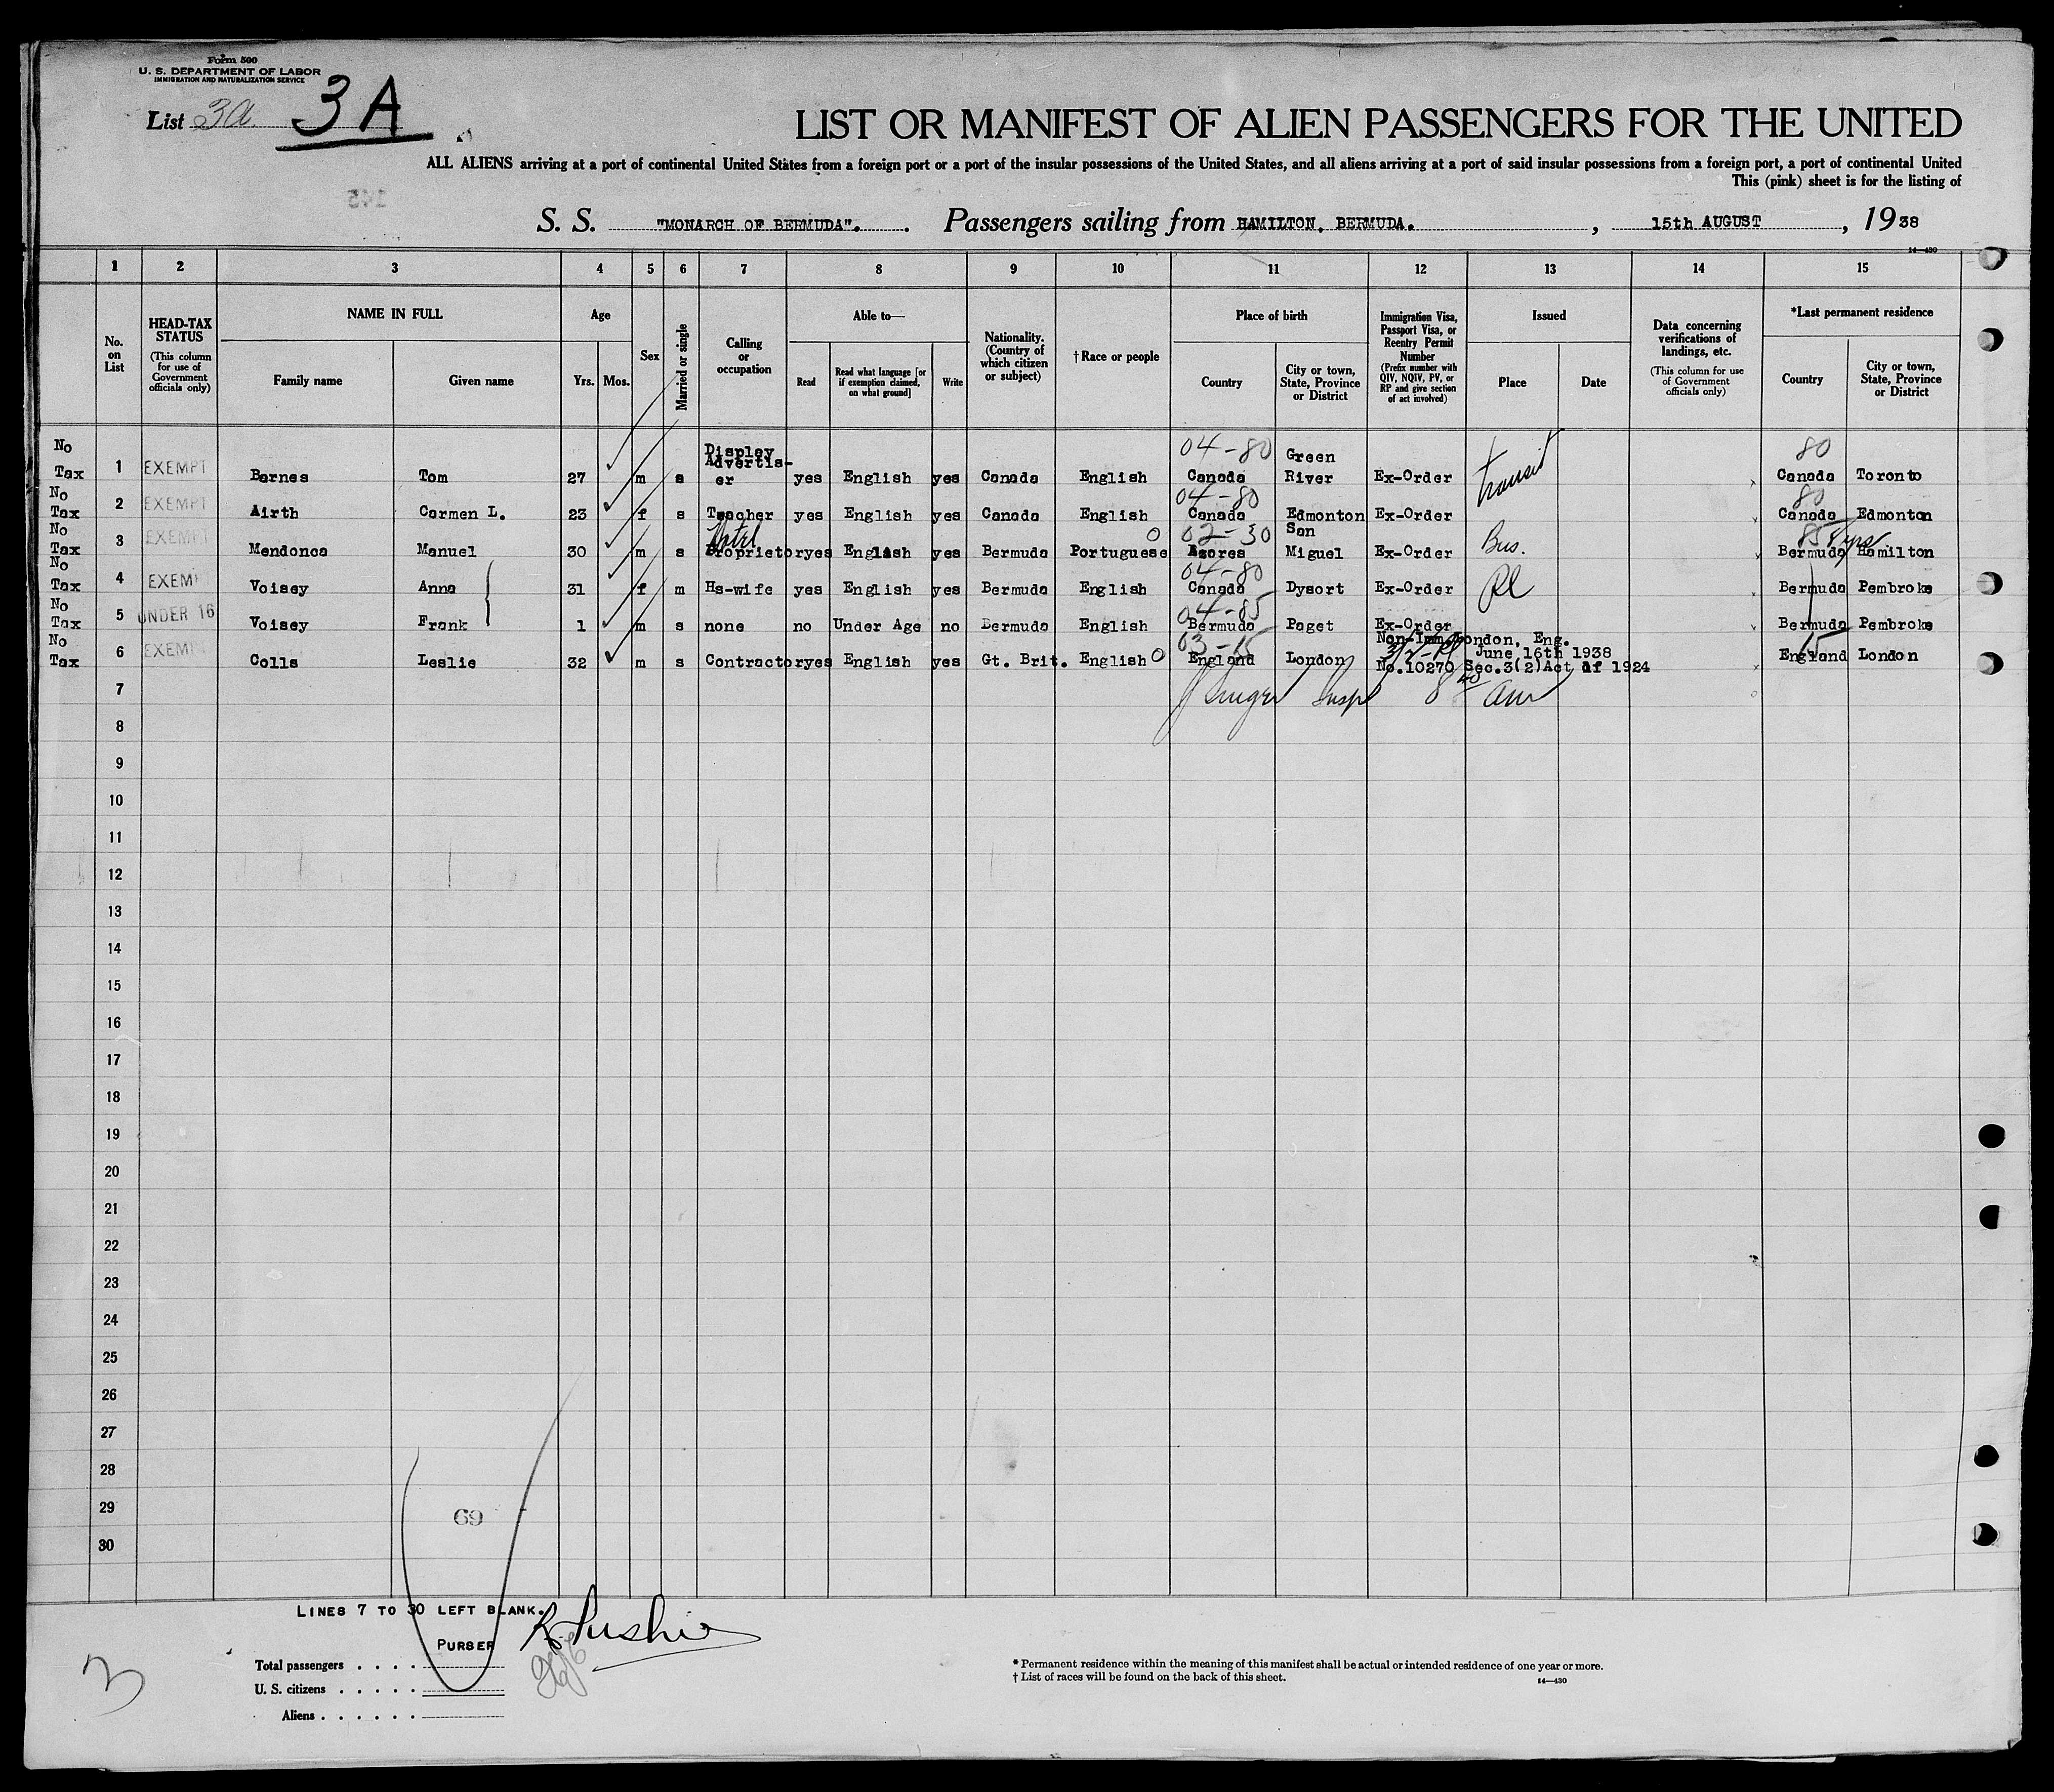 Form 500
U. S. DEPARTMENT OF LABOR
IMMIGRATION AND NATURALIZATION SERVICE
List 3a 3A
LIST OR MANIFEST OF ALIEN PASSENGERS FOR THE UNITED
ALL ALIENS arriving at a port of continental United States from a foreign port or a port of the insular possessions of the United States, and all aliens arriving at a port of said insular possessions from a foreign port, a port of continental United
This (pink) sheet is for the listing of
145
S. S. "MONARCH OF BERMUDA". Passengers sailing from HAMILTON, BERMUDA. , 15th AUGUST , 1938
14—430
1 2 3 4 5 6 7 8 9 10 11 12 13 14 15
No. on List
HEAD-TAX STATUS (This column for use of Government officials only)
NAME IN FULL Family name Given name
Age Yrs. Mos.
Sex
Married or single
Calling or occupation
Able to— Read Read what language [or if exemption claimed, on what ground] Write
Nationality. (Country of which citizen or subject)
†Race or people
Place of birth Country City or town, State, Province or District
Immigration Visa, Passport Visa, or Reentry Permit Number (Prefix number with QIV, NQIV, PV, or RP and give section of act involved)
Issued Place Date
Data concerning verifications of landings, etc. (This column for use of Government officials only)
*Last permanent residence Country City or town, State, Province or District
No Tax 1 EXEMPT Barnes Tom 27 m s Display Advertis-er yes English yes Canada English 04-80 Canada Green River Ex-Order transit 80 Canada Toronto
No Tax 2 EXEMPT Airth Carmen L. 23 f s Teacher yes English yes Canada English 04-80 Canada Edmonton Ex-Order 80 Canada Edmonton
No Tax 3 EXEMPT Mendonca Manuel 30 m s Hotel Proprietor yes English yes Bermuda Portuguese 0 02-30 Azores San Miguel Ex-Order Bus. 85 8 yrs Bermuda Hamilton
No Tax 4 EXEMP Voisey Anna 31 f m Hs-wife yes English yes Bermuda English 04-80 Canada Dysort Ex-Order Pl Bermuda Pembroke
No Tax 5 UNDER 16 Voisey Frank 1 m s none no Under Age no Bermuda English 04-85 Bermuda Paget Ex-Order Bermuda Pembroke
No Tax 6 EXEMP Colls Leslie 32 m s Contractor yes English yes Gt. Brit. English 0 03-15 England London Non-Imm London, Eng. 3/2-Pl June 16th 1938 No.10270 Sec.3(2)Act of 1924 15 England London
7 Insp 8 40 am
8
9
10
11
12
13
14
15
16
17
18
19
20
21
22
23
24
25
26
27
28
29
30
69
LINES 7 TO 30 LEFT BLANK.
PURSER
Total passengers . . . .
U. S. citizens . . . . .
Aliens . . . . . .
3
* Permanent residence within the meaning of this manifest shall be actual or intended residence of one year or more.
† List of races will be found on the back of this sheet.
14—430